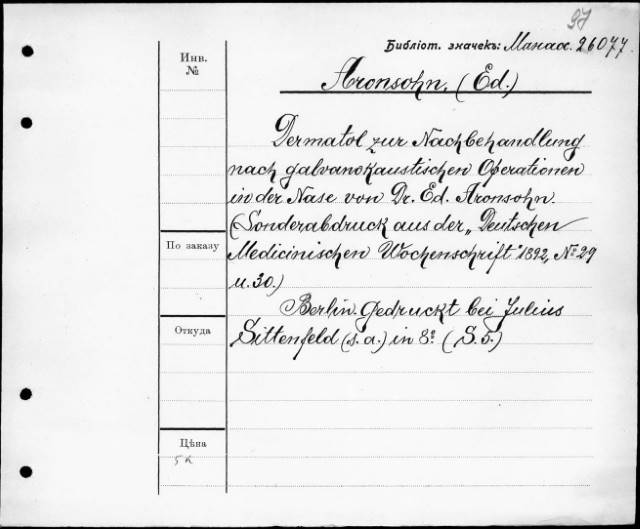 97
Библіот. значекъ: Манас. 26077.
Инв.
№
Aronsohn. (Ed.)
Dermatol zur Nachbehandlung
nach galvanokaustischen Operationen
in der Nase von Dr. Ed. Aronsohn.
(Sonderabdruck aus der „Deutschen
По заказу
Medicinischen Wochenschrift" 1892, № 29
u. 30.)
Berlin. Gedruckt bei Julius
Откуда
Sittenfeld (s. a.) in 8º (S. 5.)
Цѣна
5к